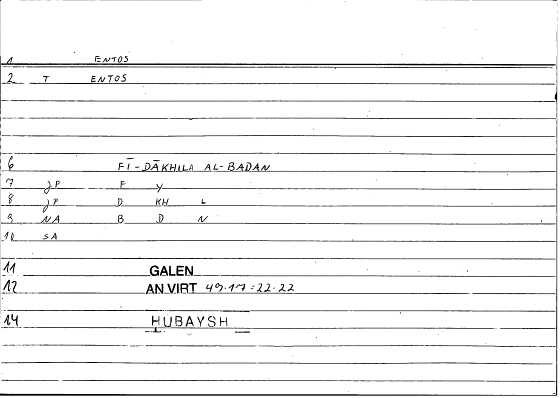 1 ENTOS
2 T ENTOS
6 FĪ-DĀKHILA AL-BADAN
7 JP F Y
8 JP D KH L
9 NA B D N
10 SA
11 GALEN
12 AN VIRT 49.17=22.22
14 HUBAYSH